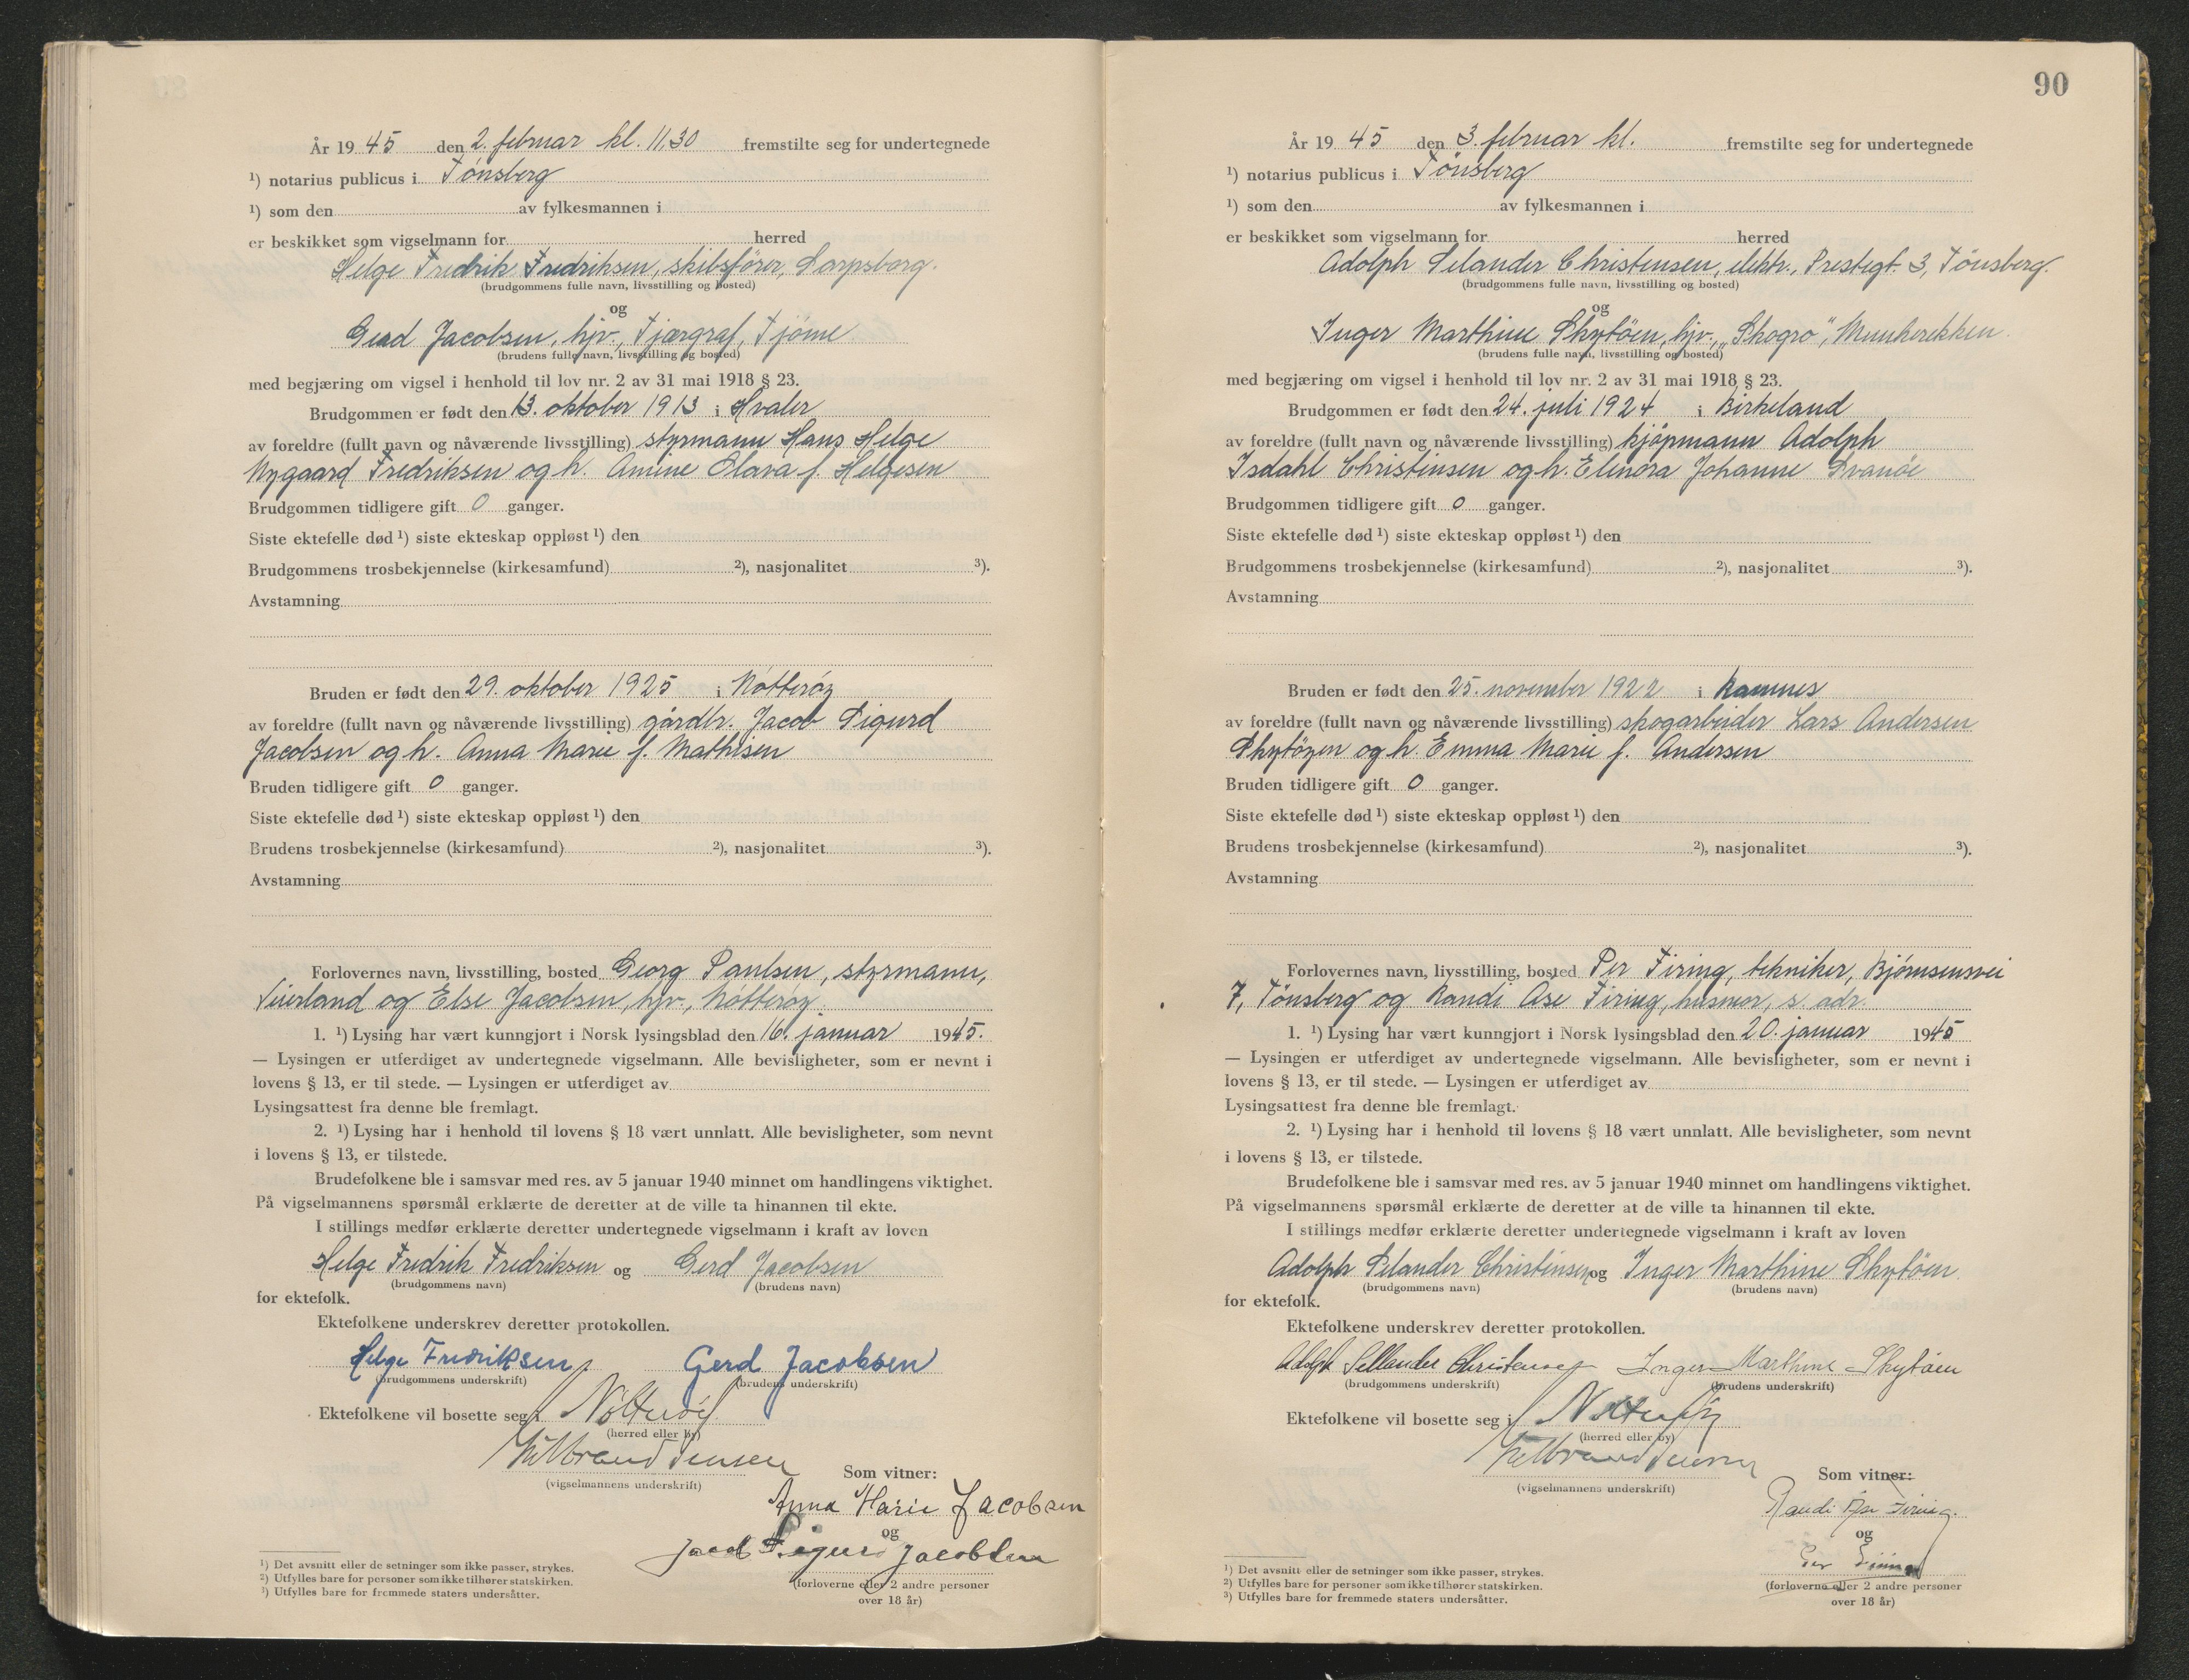 År 19 45 den 2. februar kl. 11.30 fremstilte seg for undertegnede
¹) notarius publicus i Tønsberg
¹) som den av fylkesmannen i
er beskikket som vigselmann for herred
Helge Fredrik Fredriksen, skibsfører, Sarpsborg.
(brudgommens fulle navn, livsstilling og bosted)
og
Gerd Jacobsen, hjv., Fjærgraf, Tjøme
(brudens fulle navn, livsstilling og bosted)
med begjæring om vigsel i henhold til lov nr. 2 av 31 mai 1918 § 23.
Brudgommen er født den 13. oktober 1913 i Hvaler
av foreldre (fullt navn og nåværende livsstilling) styrmann Hans Helge
Nygaard Fredriksen og h. Amine Olava f. Helgesen
Brudgommen tidligere gift 0 ganger.
Siste ektefelle død ¹) siste ekteskap oppløst ¹) den
Brudgommens trosbekjennelse (kirkesamfund) ²), nasjonalitet ³).
Avstamning
Bruden er født den 29. oktober 1925 i Nøtterøy
av foreldre (fullt navn og nåværende livsstilling) gårdbr. Jacob Sigurd
Jacobsen og h. Anna Marie f. Mathisen
Bruden tidligere gift 0 ganger.
Siste ektefelle død ¹) siste ekteskap oppløst ¹) den
Brudens trosbekjennelse (kirkesamfund) ²), nasjonalitet ³).
Avstamning
Forlovernes navn, livsstilling, bosted Georg Paulsen, styrmann,
Veierland og Else Jacobsen, hjv., Nøtterøy.
1. ¹) Lysing har vært kunngjort i Norsk lysingsblad den 16. januar 1945.
— Lysingen er utferdiget av undertegnede vigselmann. Alle bevisligheter, som er nevnt i
lovens § 13, er til stede. — Lysingen er utferdiget av
Lysingsattest fra denne ble fremlagt.
2. ¹) Lysing har i henhold til lovens § 18 vært unnlatt. Alle bevisligheter, som nevnt
i lovens § 13, er tilstede.
Brudefolkene ble i samsvar med res. av 5 januar 1940 minnet om handlingens viktighet.
På vigselmannens spørsmål erklærte de deretter at de ville ta hinannen til ekte.
I stillings medfør erklærte deretter undertegnede vigselmann i kraft av loven
Helge Fredrik Fredriksen og Gerd Jacobsen
(brudgommens navn) (brudens navn)
for ektefolk.
Ektefolkene underskrev deretter protokollen.
Helge Fredriksen Gerd Jacobsen
(brudgommens underskrift) (brudens underskrift)
Ektefolkene vil bosette seg i Nøtterøy
(herred eller by)
Hilbrand Jensen
(vigselmannens underskrift)
Som vitner:
Anna Marie Jacobsen
og
Jacob Sigurd Jacobsen
(forloverne eller 2 andre personer
over 18 år)
¹) Det avsnitt eller de setninger som ikke passer, strykes.
²) Utfylles bare for personer som ikke tilhører statskirken.
³) Utfylles bare for fremmede staters undersåtter.
90
År 19 45 den 3. februar kl. fremstilte seg for undertegnede
¹) notarius publicus i Tönsberg
¹) som den av fylkesmannen i
er beskikket som vigselmann for herred
Adolph Selander Christensen, elektr., Prestegt. 3, Tönsberg.
(brudgommens fulle navn, livsstilling og bosted)
og
Inger Marthine Skytöen, hjv., "Skogro", Munkerekken.
(brudens fulle navn, livsstilling og bosted)
med begjæring om vigsel i henhold til lov nr. 2 av 31 mai 1918 § 23.
Brudgommen er født den 24. juli 1924 i Birkeland
av foreldre (fullt navn og nåværende livsstilling) kjöpmann Adolph
Isdahl Christensen og h. Elenora Johanne Svanöe
Brudgommen tidligere gift 0 ganger.
Siste ektefelle død ¹) siste ekteskap oppløst ¹) den
Brudgommens trosbekjennelse (kirkesamfund) ²), nasjonalitet ³).
Avstamning
Bruden er født den 25. november 1922 i Ramnes
av foreldre (fullt navn og nåværende livsstilling) skogarbeider Lars Andersen
Skytöyen og h. Emma Marie f. Andersen
Bruden tidligere gift 0 ganger.
Siste ektefelle død ¹) siste ekteskap oppløst ¹) den
Brudens trosbekjennelse (kirkesamfund) ²), nasjonalitet ³).
Avstamning
Forlovernes navn, livsstilling, bosted Per Firing, tekniker, Bjørnsensvei
7, Tönsberg og Randi Åse Firing, husmor, s. adr.
1. ¹) Lysing har vært kunngjort i Norsk lysingsblad den 20. januar 1945
— Lysingen er utferdiget av undertegnede vigselmann. Alle bevisligheter, som er nevnt i
lovens § 13, er til stede. — Lysingen er utferdiget av
Lysingsattest fra denne ble fremlagt.
2. ¹) Lysing har i henhold til lovens § 18 vært unnlatt. Alle bevisligheter, som nevnt
i lovens § 13, er tilstede.
Brudefolkene ble i samsvar med res. av 5 januar 1940 minnet om handlingens viktighet.
På vigselmannens spørsmål erklærte de deretter at de ville ta hinannen til ekte.
I stillings medfør erklærte deretter undertegnede vigselmann i kraft av loven
Adolph Selander Christensen og Inger Marthine Skytöen
(brudgommens navn) (brudens navn)
for ektefolk.
Ektefolkene underskrev deretter protokollen.
Adolph Sellander Christensen Inger Marthine Skytöen
(brudgommens underskrift) (brudens underskrift)
Ektefolkene vil bosette seg i Nøtterøy
(herred eller by)
Hilbrand Jensen
(vigselmannens underskrift)
Som vitner:
Randi Åse Firing.
og
Per Firing
(forloverne eller 2 andre personer
over 18 år)
¹) Det avsnitt eller de setninger som ikke passer, strykes.
²) Utfylles bare for personer som ikke tilhører statskirken.
³) Utfylles bare for fremmede staters undersåtter.